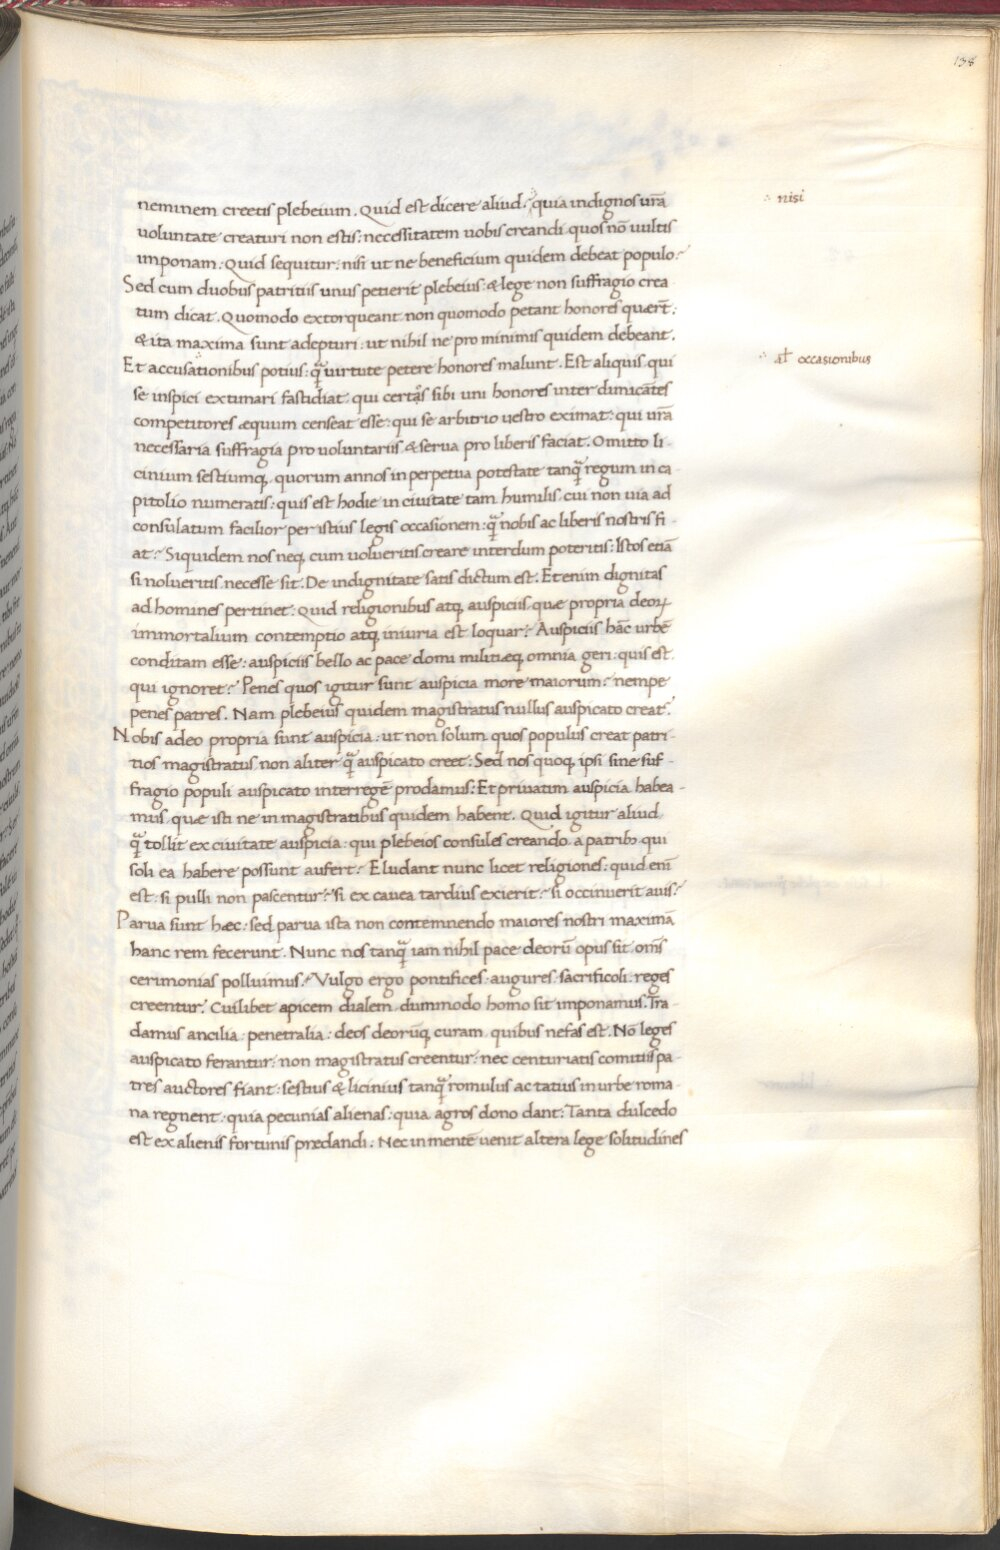 138
neminem creetis plebeium. Quid est dicere aliud: quia indignos urā
uoluntate creaturi non estis: necessitatem uobis creandi quos nō uultis
imponam. Quid sequitur: nisi ut ne beneficium quidem debeat populo:
Sed cum duobus patritiis unus petierit plebeius: & lege non suffragio crea
tum dicat. Quomodo extorqueant non quomodo petant honores quærēt:
& ita maxima sunt adepturi: ut nihil ne pro minimis quidem debeant.
Et accusationibus potius: q̄ uirtute petere honores malunt. Est aliquis qui
se inspici extimari fastidiat. qui certos sibi uni honores inter dimicātes
competitores æquum censeat esse: qui se arbitrio uestro eximat: qui urā
necessaria suffragia pro uoluntariis & serua pro liberis faciat. Omitto li
cinium sestiumq, quorum annos in perpetua potestate tanq̄ regum in ca
pitolio numeratis: quis est hodie in ciuitate tam humilis. cui non uia ad
consulatum facilior per istius legis occasionem: q̄ nobis ac liberis nostris fi-
at: Siquidem nos neq, cum uolueritis creare interdum poteritis: Istos etiā
si nolueritis necesse sit. De indignitate satis dictum est. Etenim dignitas
ad homines pertinet: Quid religionibus atq, auspiciis. quæ propria deoꝝ
immortalium contemptio atq, iniuria est loquar: Auspiciis hāc urbē
conditam esse: auspiciis bello ac pace domi militiæq, omnia geri: quis est
qui ignoret: Penes quos igitur sunt auspicia more maiorum: nempe
penes patres. Nam plebeius quidem magistratus nullus auspicato creat̄.
Nobis adeo propria sunt auspicia: ut non solum quos populus creat patri-
tios magistratus non aliter q̄ auspicato creet: Sed nos quoq, ipsi sine suf-
fragio populi auspicato interregē prodamus: Et priuatim auspicia habea-
mus. quæ isti ne in magistratibus quidem habent. Quid igitur aliud
q̄ tollit ex ciuitate auspicia: qui plebeios consules creando a patrib; qui
soli ea habere possunt aufert: Eludant nunc licet religiones: quid eni̅
est: si pulli non pascentur: si ex cauea tardius exierit: si occinuerit auis:
Parua sunt hæc: sed parua ista non contemnendo maiores nostri maximā
hanc rem fecerunt. Nunc nos tanq̄ iam nihil pace deorū opus sit om̄s
cerimonias polluimus: Vulgo ergo pontifices. augures. sacrificoli. reges
creentur. Cuilibet apicem dialem. dummodo homo sit imponamus. Tra-
damus ancilia. penetralia: deos deorūq, curam. quibus nefas est. Nō leges
auspicato ferantur: non magistratus creentur: nec centuriatis comitiis pa-
tres auctores fiant: sestius & licinius tanq̄ romulus ac tatius in urbe roma-
na regnent: quia pecunias alienas: quia agros dono dant: Tanta dulcedo
est ex alienis fortunis prædandi: Nec in mentē uenit altera lege solitudines
nisi
aƚ occasionibus